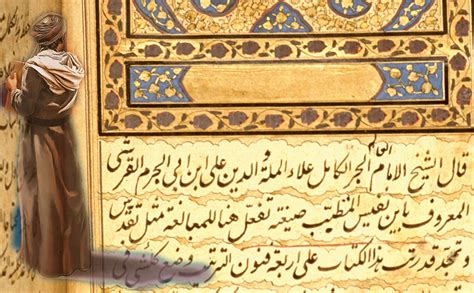 قال الشيخ الامام العالم الحبر الكامل علاء الملة والدين على ابن ابى الحرم القرشى
المعروف بابن نفيس المتطبب صيغة تفعل هنا للمبالغة مثل تقدس
وتمجد قد رتبت هذا الكتاب على اربعة فنون الترتيب وضع كل شى فى